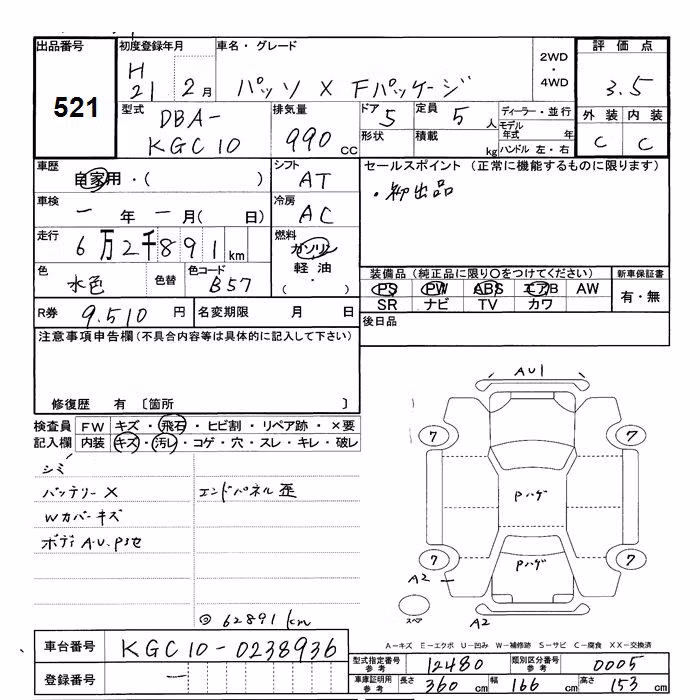 出品番号 初度登録年月 車名・グレード 2WD・4WD 評価点
521
H 21 2月 パッソ X Fパッケージ 3.5
型式 DBA-KGC10
排気量 990 cc
ドア 5 定員 5 人
形状 積載 kg
ディーラー・並行
モデル年式 年
ハンドル 左・右
外装 内装
C C
車歴 自家用・( )
シフト AT
車検 一 年 一 月( 日)
冷房 AC
走行 6万2千891 km
燃料 ガソリン 軽油 ( ・ )
色 水色 色替 色コード B57
R券 9.510 円 名変期限 月 日
セールスポイント (正常に機能するものに限ります)
・初出品
装備品 (純正品に限り○をつけてください) 新車保証書
PS PW ABS エアB AW 有・無
SR ナビ TV カワ
後日品
注意事項申告欄(不具合内容等は具体的に記入して下さい)
修復歴 有 〔箇所 〕
検査員 FW キズ・飛石・ヒビ割・リペア跡・×要
記入欄 内装 キズ・汚レ・コゲ・穴・スレ・キレ・破レ
シミ
バッテリーX エンドパネル歪
Wカバーキズ
ボディA.U.P3セ
◎62891km
AU1
7 7
Pハゲ
Pハゲ
7 7
A2
スペア
A2
A−キズ E−エクボ U−凹み W−補修跡 S−サビ C−腐食 XX−交換済
車台番号 KGC10-0238936
登録番号 一
型式指定番号 参考 12480 類別区分番号 参考 0005
車庫証明用 参考 長さ 360 cm 幅 166 cm 高さ 153 cm